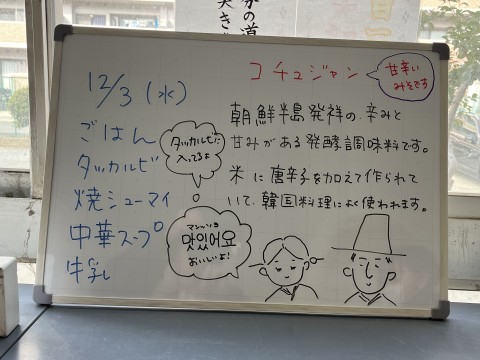 12/3（水）
ごはん
タッカルビ
焼シューマイ
中華スープ
牛乳
コチュジャン
甘辛い
みそです
朝鮮半島発祥の、辛みと
甘みがある発酵調味料です。
米に唐辛子を加えて作られて
いて、韓国料理によく使われます。
タッカルビに
入ってるよ
マシッソヨ
맛있어요
おいしいよ！